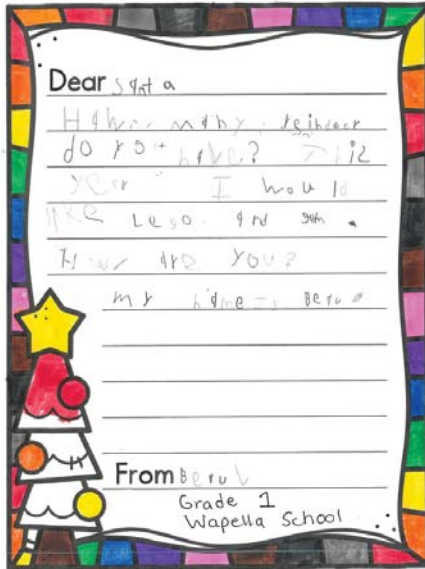 Dear Santa
How many reindeer
do you have? This
year I would
like Lego. and
How are you?
my name is Berul
From Berul
Grade 1
Wapella School